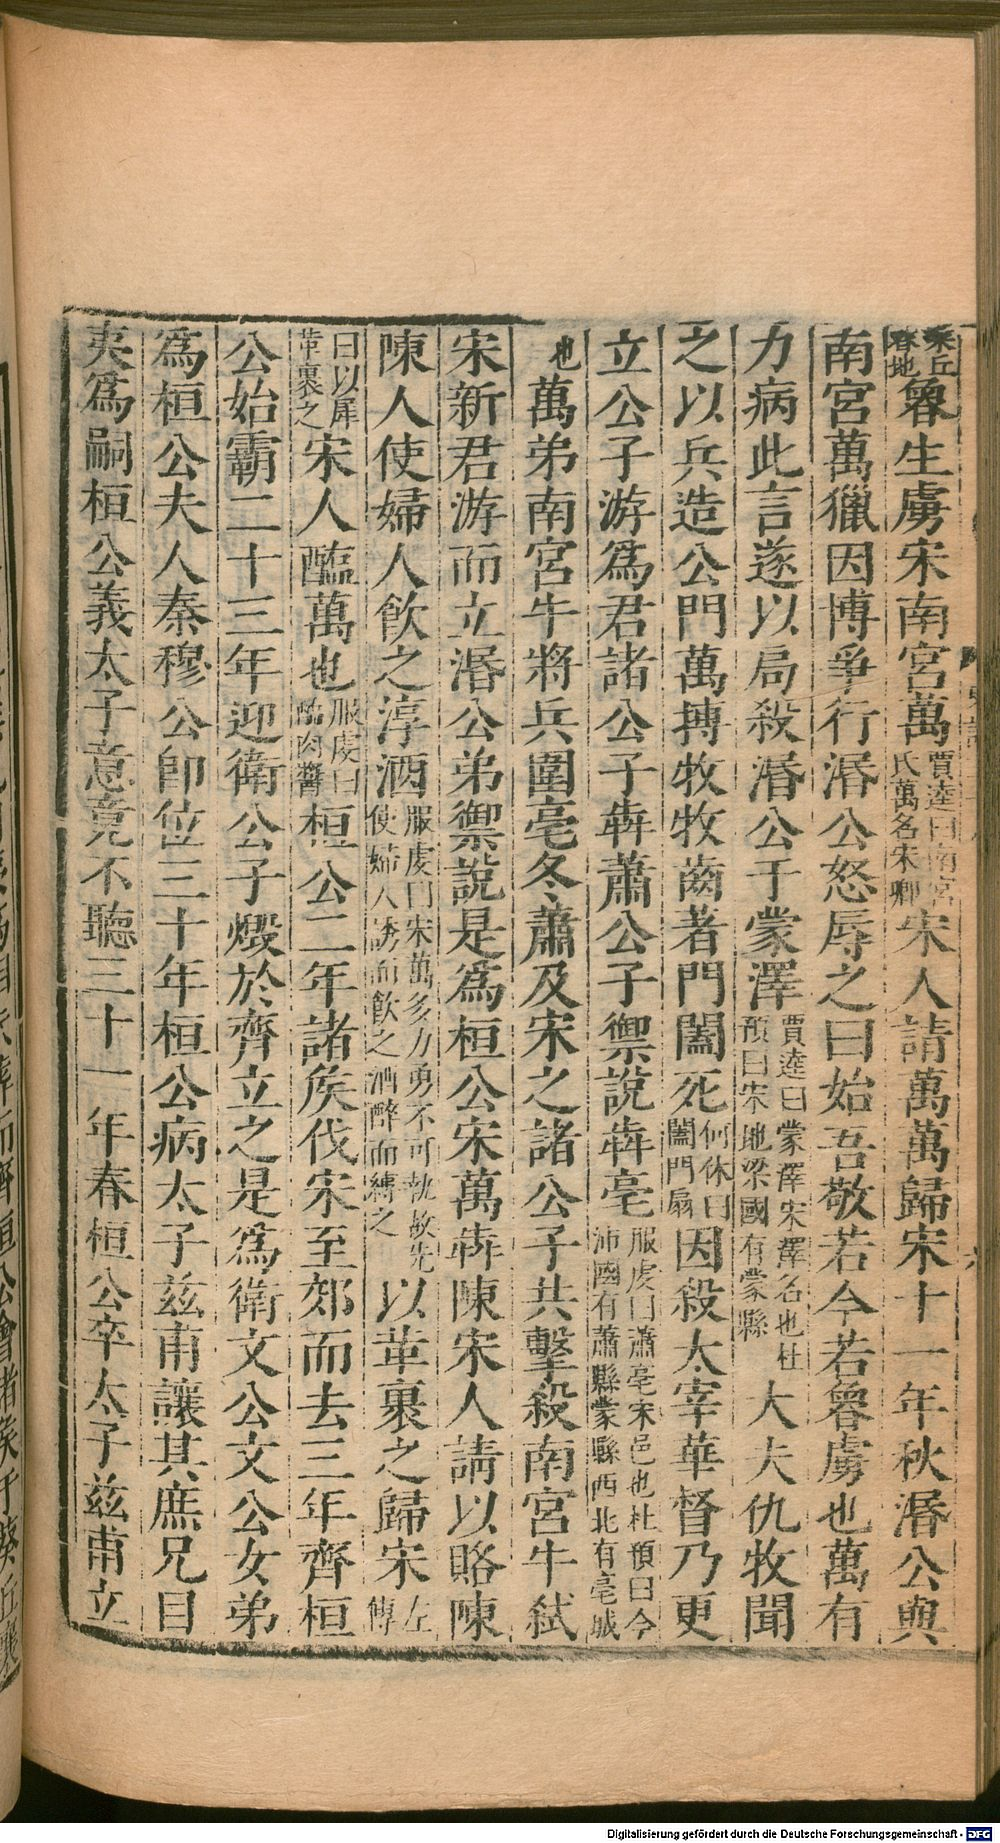 乘丘魯地魯生虜宋南宮萬賈逵曰南宮氏萬名宋卿宋人請萬萬歸宋十一年秋湣公與
南宮萬獵因博爭行湣公怒辱之曰始吾敬若今若魯虜也萬有
力病此言遂以局殺湣公于蒙澤賈逵曰蒙澤宋澤名也杜預曰宋地梁國有蒙縣大夫仇牧聞
之以兵造公門萬搏牧牧齒著門闔死何休曰闔門扇因殺太宰華督乃更
立公子游爲君諸公子犇蕭公子禦說犇亳服虔曰蕭亳宋邑也杜預曰今沛國有蕭縣蒙縣西北有亳城
也萬弟南宮牛將兵圍亳冬蕭及宋之諸公子共擊殺南宮牛弑
宋新君游而立湣公弟禦說是爲桓公宋萬犇陳宋人請以賂陳
陳人使婦人飲之淳酒服虔曰宋萬多力勇不可執故先使婦人誘而飲之酒醉而縛之以革裹之歸宋左傳
曰以犀革裹之宋人醢萬也服虔曰醢肉醬桓公二年諸矦伐宋至郊而去三年齊桓
公始霸二十三年迎衛公子燬於齊立之是爲衛文公文公女弟
爲桓公夫人秦穆公卽位三十年桓公病太子茲甫讓其庶兄目
夷爲嗣桓公義太子意竟不聽三十一年春桓公卒太子茲甫立
Digitalisierung gefördert durch die Deutsche Forschungsgemeinschaft - DFG